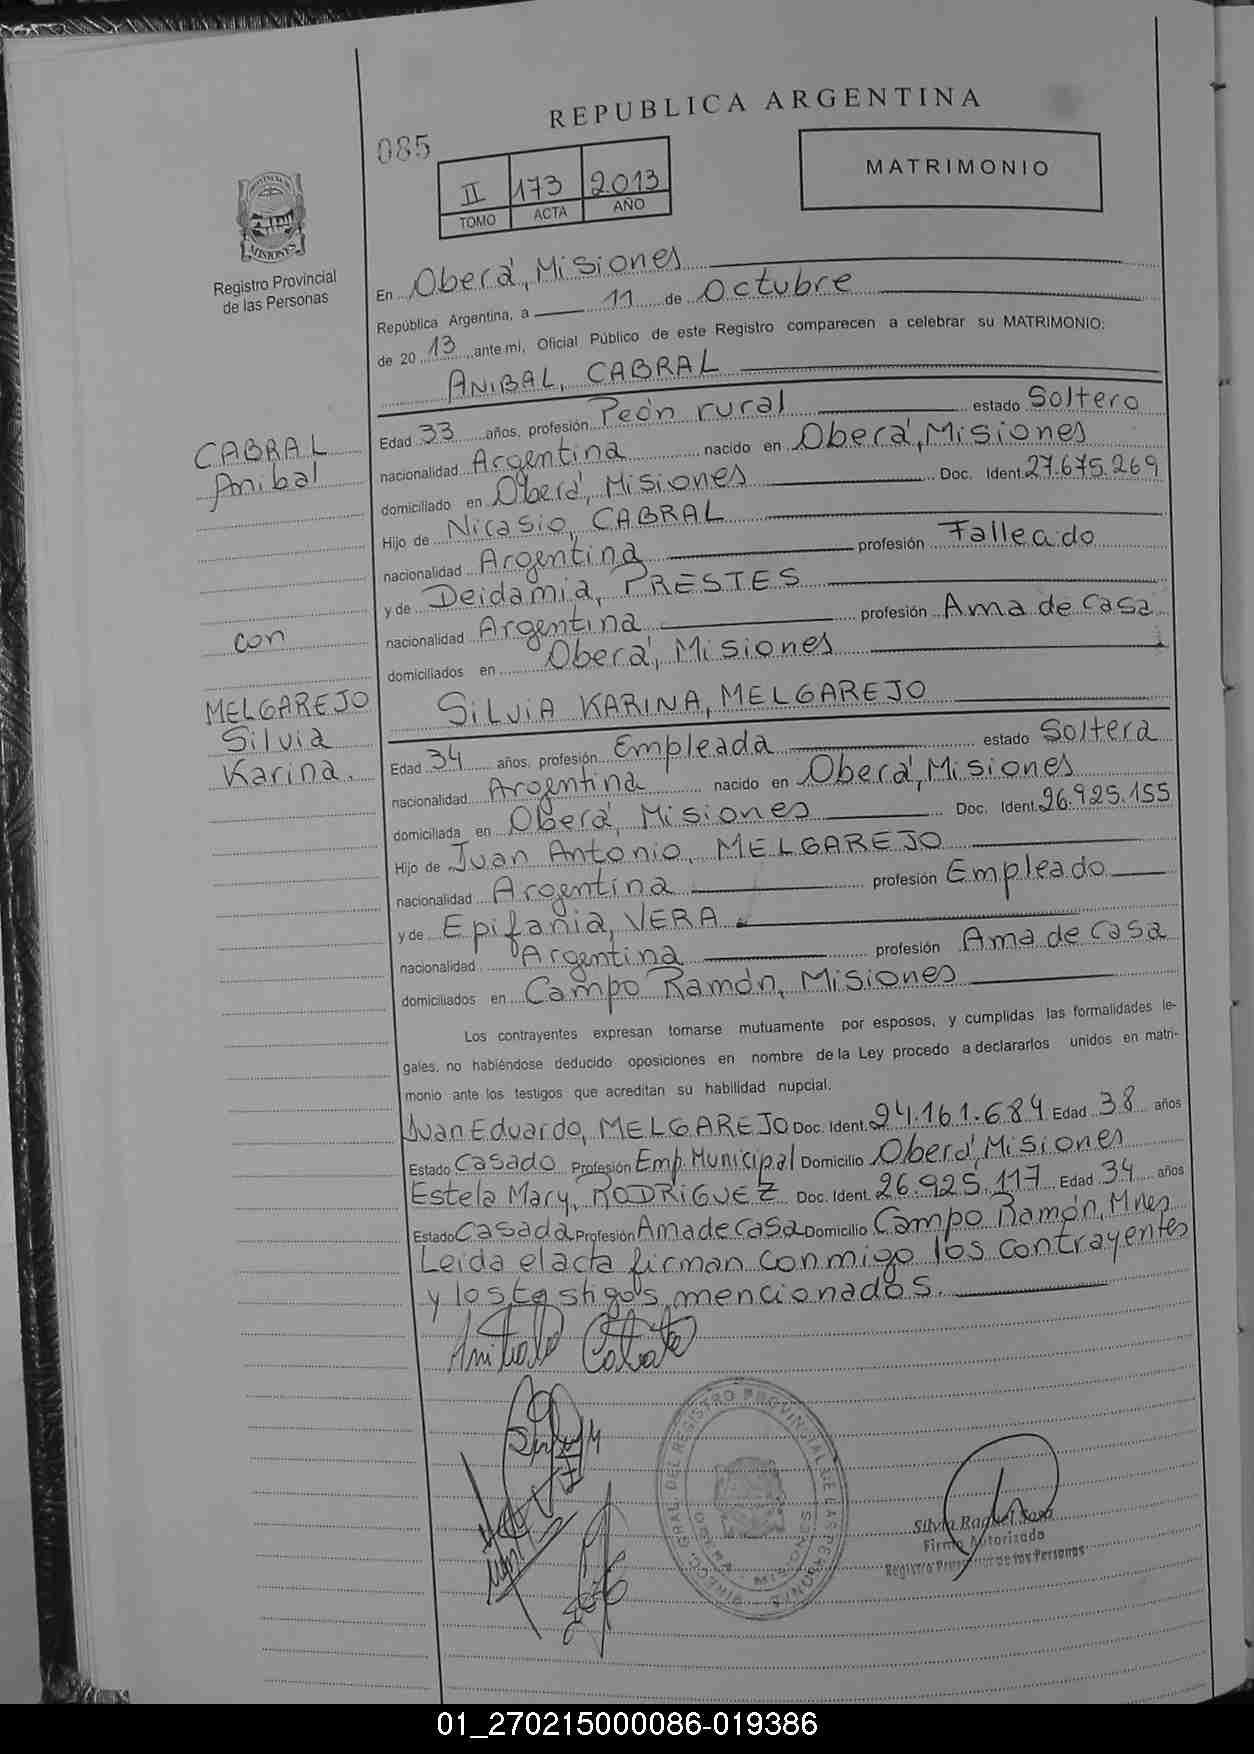 REPUBLICA ARGENTINA
085
II 173 2013
TOMO ACTA AÑO
MATRIMONIO
PROVINCIA DE
MISIONES
Registro Provincial
de las Personas
En Oberá, Misiones
República Argentina, a 11 de Octubre
de 20 13 ante mi, Oficial Público de este Registro comparecen a celebrar su MATRIMONIO:
ANIBAL, CABRAL
Edad 33 años, profesión Peón rural estado Soltero
CABRAL
Anibal
nacionalidad Argentina nacido en Oberá, Misiones
domiciliado en Oberá, Misiones Doc. Ident. 27.675.269
Hijo de Nicasio, CABRAL
nacionalidad Argentina profesión Falleado
y de Deidamia, PRESTES
con
nacionalidad Argentina profesión Ama de casa
domiciliados en Oberá, Misiones
MELGAREJO
Silvia
Karina.
SILVIA KARINA, MELGAREJO
Edad 34 años, profesión Empleada estado Soltera
nacionalidad Argentina nacido en Oberá, Misiones
domiciliada en Oberá, Misiones Doc. Ident. 26.925.155
Hijo de Juan Antonio, MELGAREJO
nacionalidad Argentina profesión Empleado
y de Epifania, VERA
nacionalidad Argentina profesión Ama de casa
domiciliados en Campo Ramón, Misiones
Los contrayentes expresan tomarse mutuamente por esposos, y cumplidas las formalidades le-
gales, no habiéndose deducido oposiciones en nombre de la Ley procedo a declararlos unidos en matri-
monio ante los testigos que acreditan su habilidad nupcial.
Juan Eduardo, MELGAREJO Doc. Ident. 24.161.684 Edad 38 años
Estado Casado Profesión Emp. Municipal Domicilio Oberá, Misiones
Estela Mary, RODRIGUEZ Doc. Ident. 26.925.117 Edad 34 años
Estado Casada Profesión Ama de Casa Domicilio Campo Ramón, Mnes
Leida el acta firman conmigo los contrayentes
y los testigos mencionados.
DIRECC. GRAL. DEL REGISTRO PROVINCIAL DE LAS PERSONAS
OBERA MISIONES
Silvia Raquel
Firma Autorizada
Registro Provincial de las Personas
01_270215000086-019386